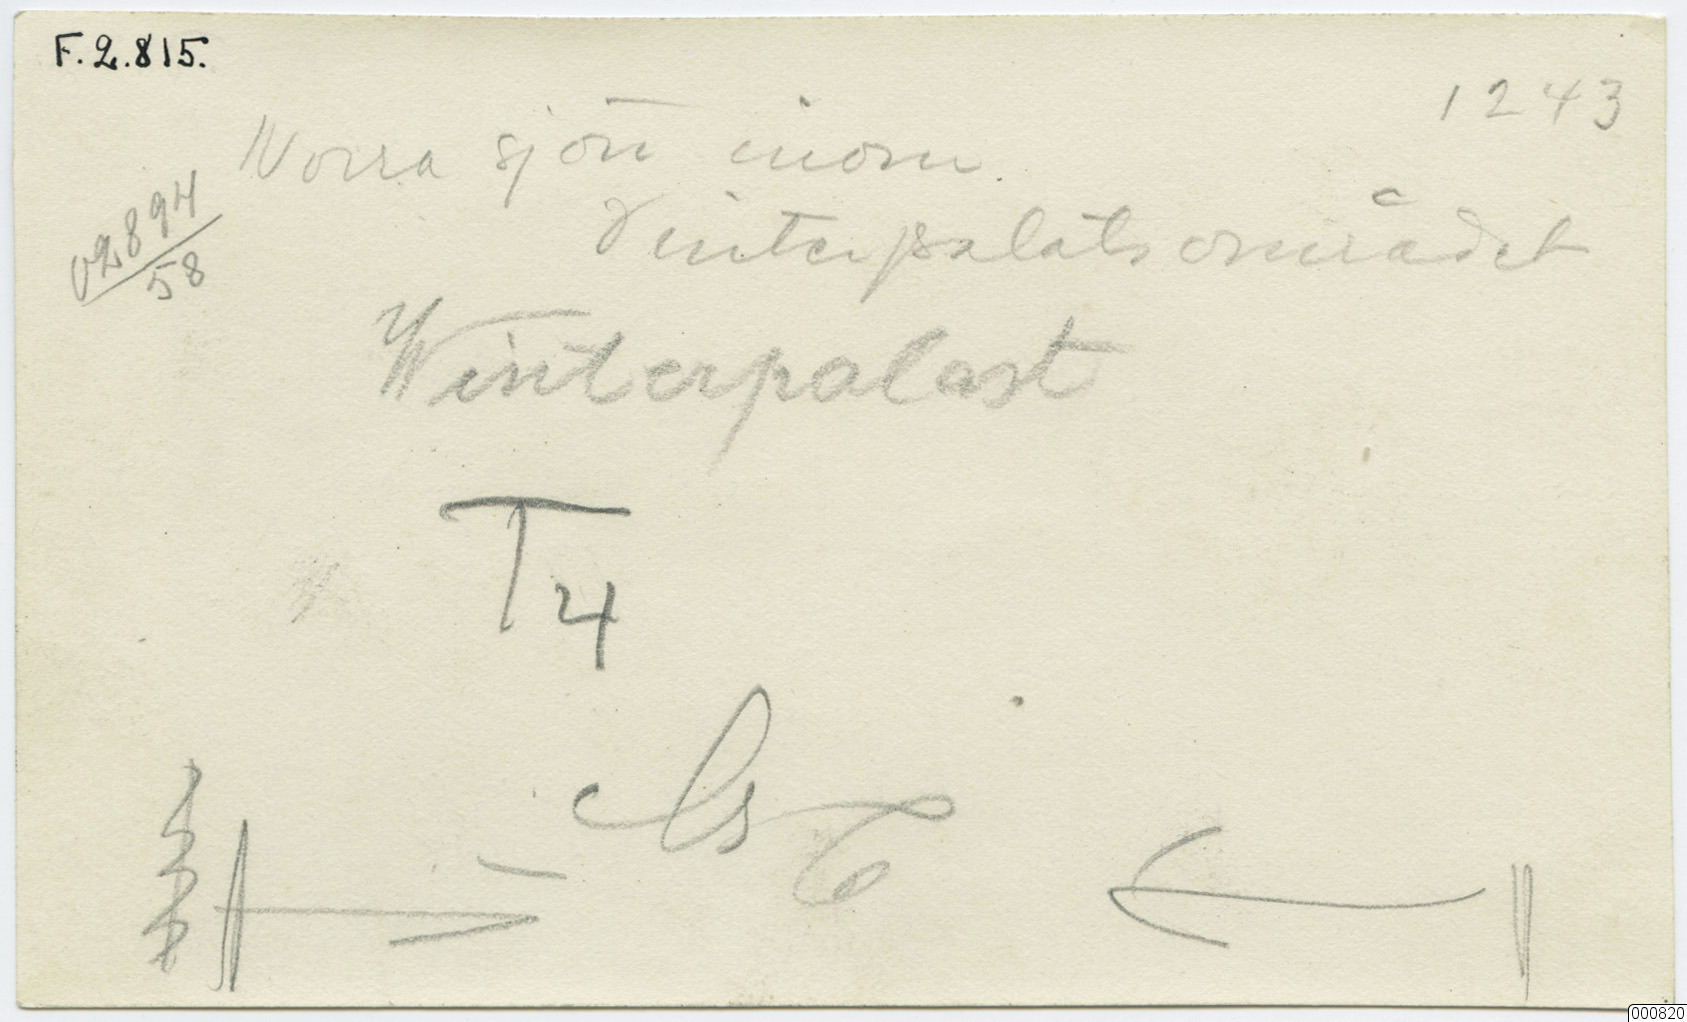 F.2.815.
1243
Norra sjön inom
Vinterpalatsområdet
02894
58
Winterpalast
T4
000820